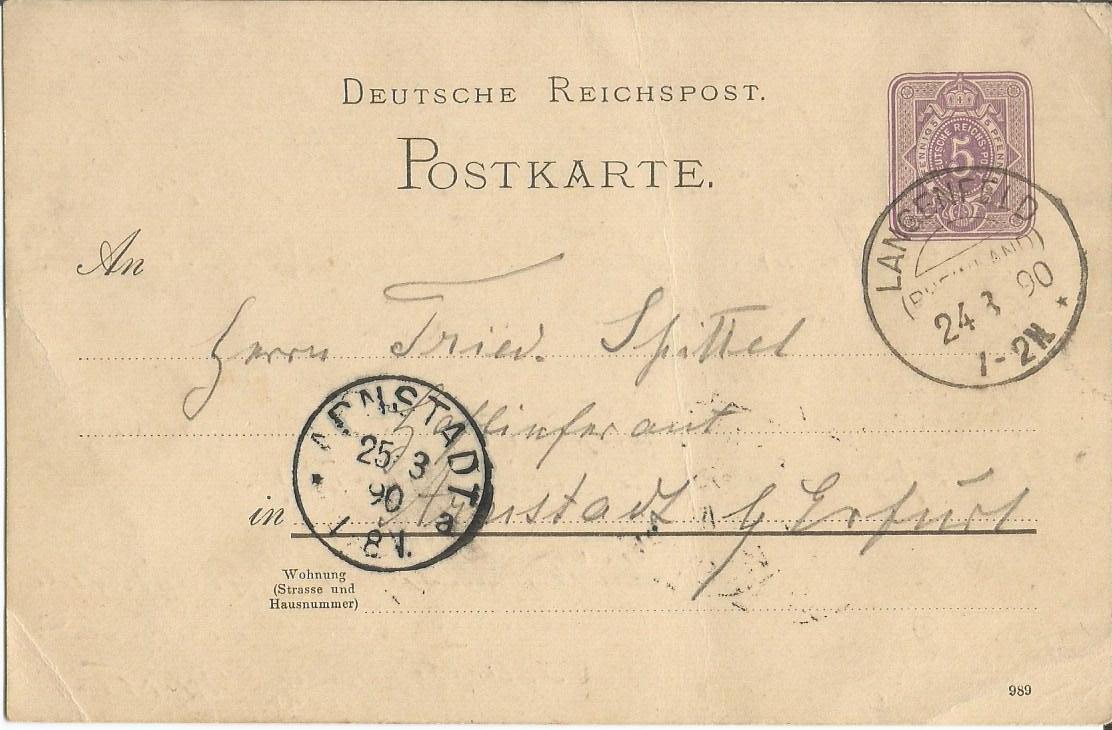 DEUTSCHE REICHSPOST.
POSTKARTE.
5 PFENNIG 5 PFENNIG
DEUTSCHE REICHS-POST
5
LANGENFELD
(RHEINLAND)
24 3 90
1-2N
An
Herrn Fried. Spittel
Hoflieferant
in Arnstadt b/ Erfurt
ARNSTADT
25/3
90
8V.
a
Wohnung
(Strasse und
Hausnummer)
989